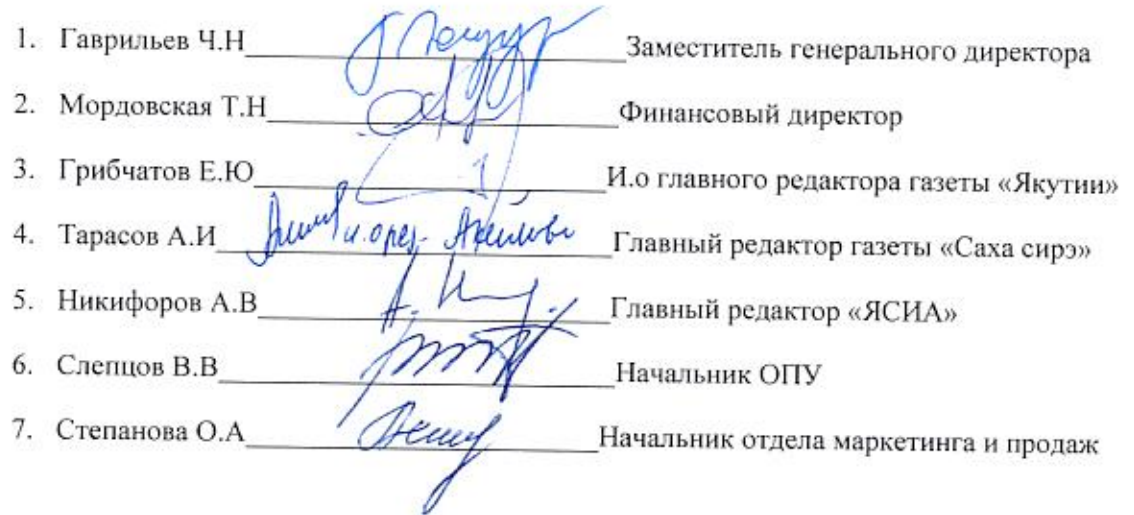 1. Гаврильев Ч.Н Заместитель генерального директора
2. Мордовская Т.Н Финансовый директор
3. Грибчатов Е.Ю И.о главного редактора газеты «Якутии»
4. Тарасов А.И Главный редактор газеты «Саха сирэ»
5. Никифоров А.В Главный редактор «ЯСИА»
6. Слепцов В.В Начальник ОПУ
7. Степанова О.А Начальник отдела маркетинга и продаж